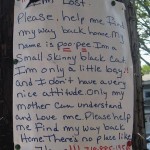 I'm Lost
Please, help me Find
my way back home. My
name is poo pee Im a
small skinny black cat
Inm only a little boy!!
and I don't have a very
nice attitude. Only my
mother can understand
and Love me. Please help
me Find my way back
Home. There's no place like